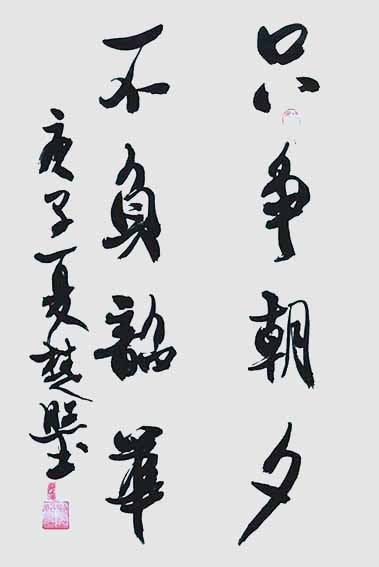 只争朝夕
不负韶华
庚子夏楚